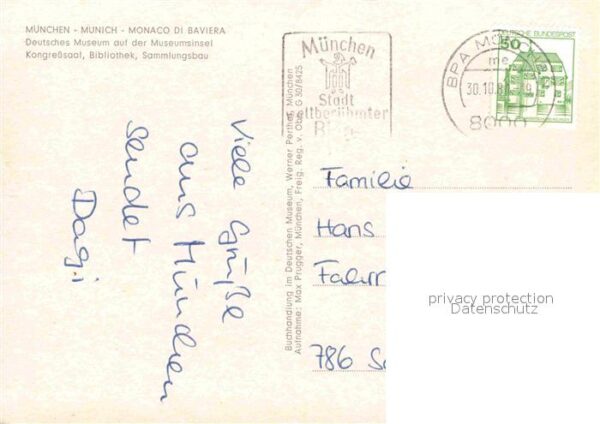 MÜNCHEN - MUNICH - MONACO DI BAVIERA
Deutsches Museum auf der Museumsinsel
Kongreßsaal, Bibliothek, Sammlungsbau
Viele Grüße
aus München
sendet
Dagi
Buchhandlung im Deutschen Museum, Werner Perthel, München
Aufnahme: Max Prugger, München, Freig. Reg. v. Obb. G 30/8425
München
Stadt
weltberühmter
BPA
30.10.8
8000
50
DEUTSCHE BUNDESPOST
Familie
Hans
Fahrr
786 Sc
privacy protection
Datenschutz